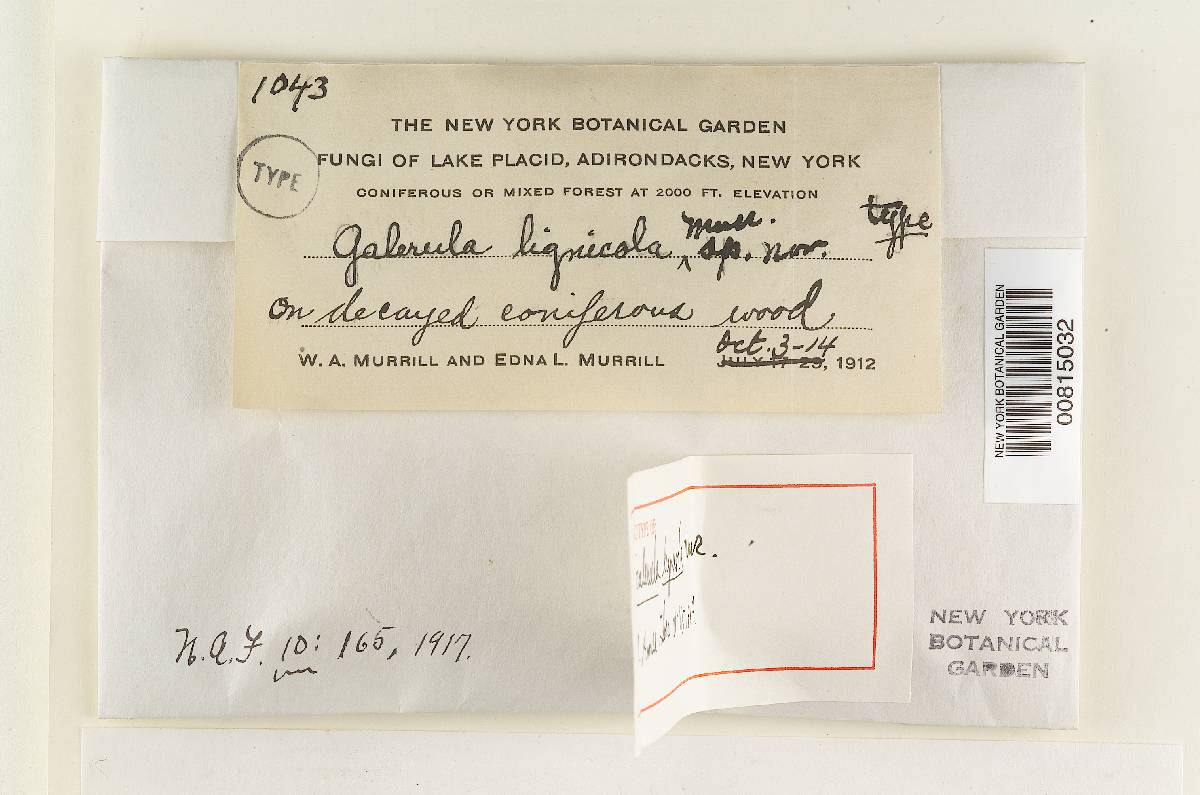 1043
THE NEW YORK BOTANICAL GARDEN
TYPE
FUNGI OF LAKE PLACID, ADIRONDACKS, NEW YORK
CONIFEROUS OR MIXED FOREST AT 2000 FT. ELEVATION
Galerula lignicola, Murr. sp. nov. type
On decayed coniferous wood
Oct. 3-14
W. A. MURRILL AND EDNA L. MURRILL JULY 17-29, 1912
NEW YORK BOTANICAL GARDEN
00815032
N.A.F. 10: 165, 1917.
NEW YORK
BOTANICAL
GARDEN